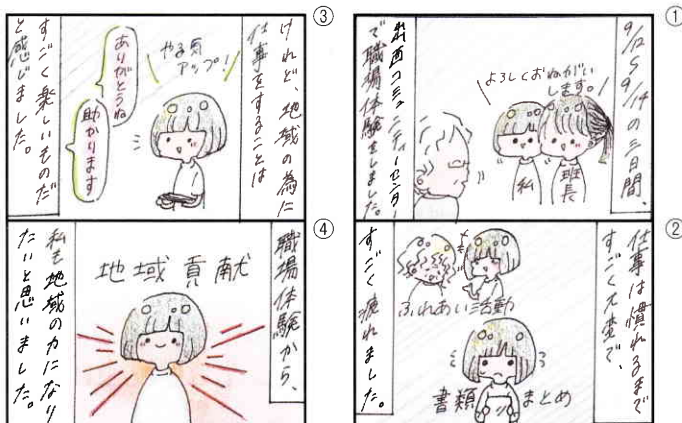 ①
9/12〜9/14の三日間、
出西コミュニティーセンター
で職場体験をしました。
よろしくおねがい
します。
私
班長
②
仕事は慣れるまで
すごく大変で、
ふれあい活動
書類まとめ
すごく疲れました。
③
けれど、地域の為に
仕事をすることは
やる気
アップ！
ありがとうね
助かります
すごく楽しいものだ
と感じました。
④
職場体験から、
地域貢献
私も地域の力になり
たいと思いました。